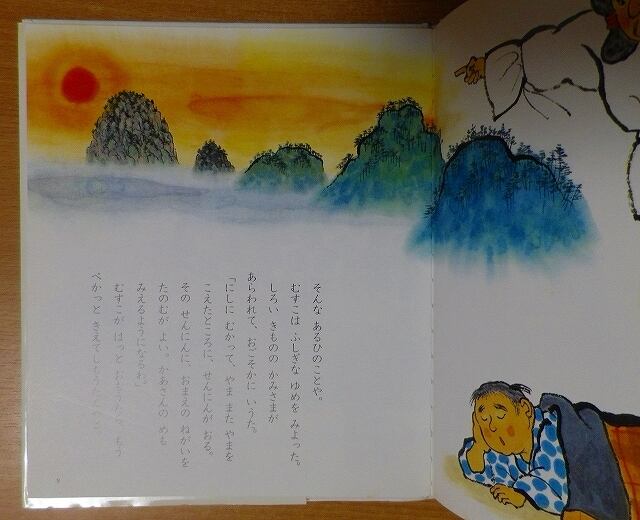 そんな あるひのことや。
むすこは ふしぎな ゆめを みよった。
しろい きものの かみさまが
あらわれて、おごそかに いうた。
「にしに むかって、やま また やまを
こえたところに、せんにんが おる。
その せんにんに、おまえの ねがいを
たのむが よい。かあさんの めも
みえるようになるぞ」
むすこが はっと おもうたら、もう
ぺかっと きえてしもうた
9